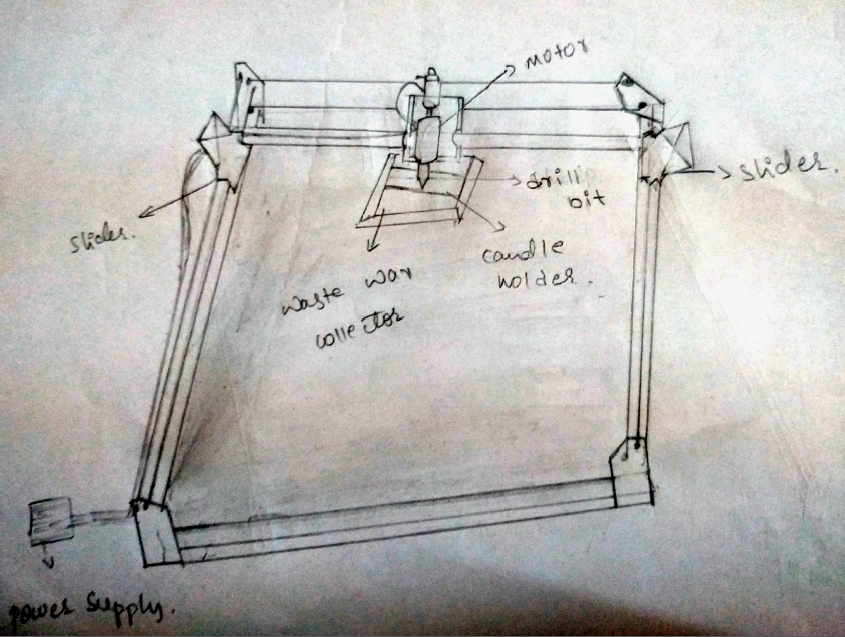 motor
slider.
drill
bit
slider.
candle
holder.
waste wax
collector
power supply.